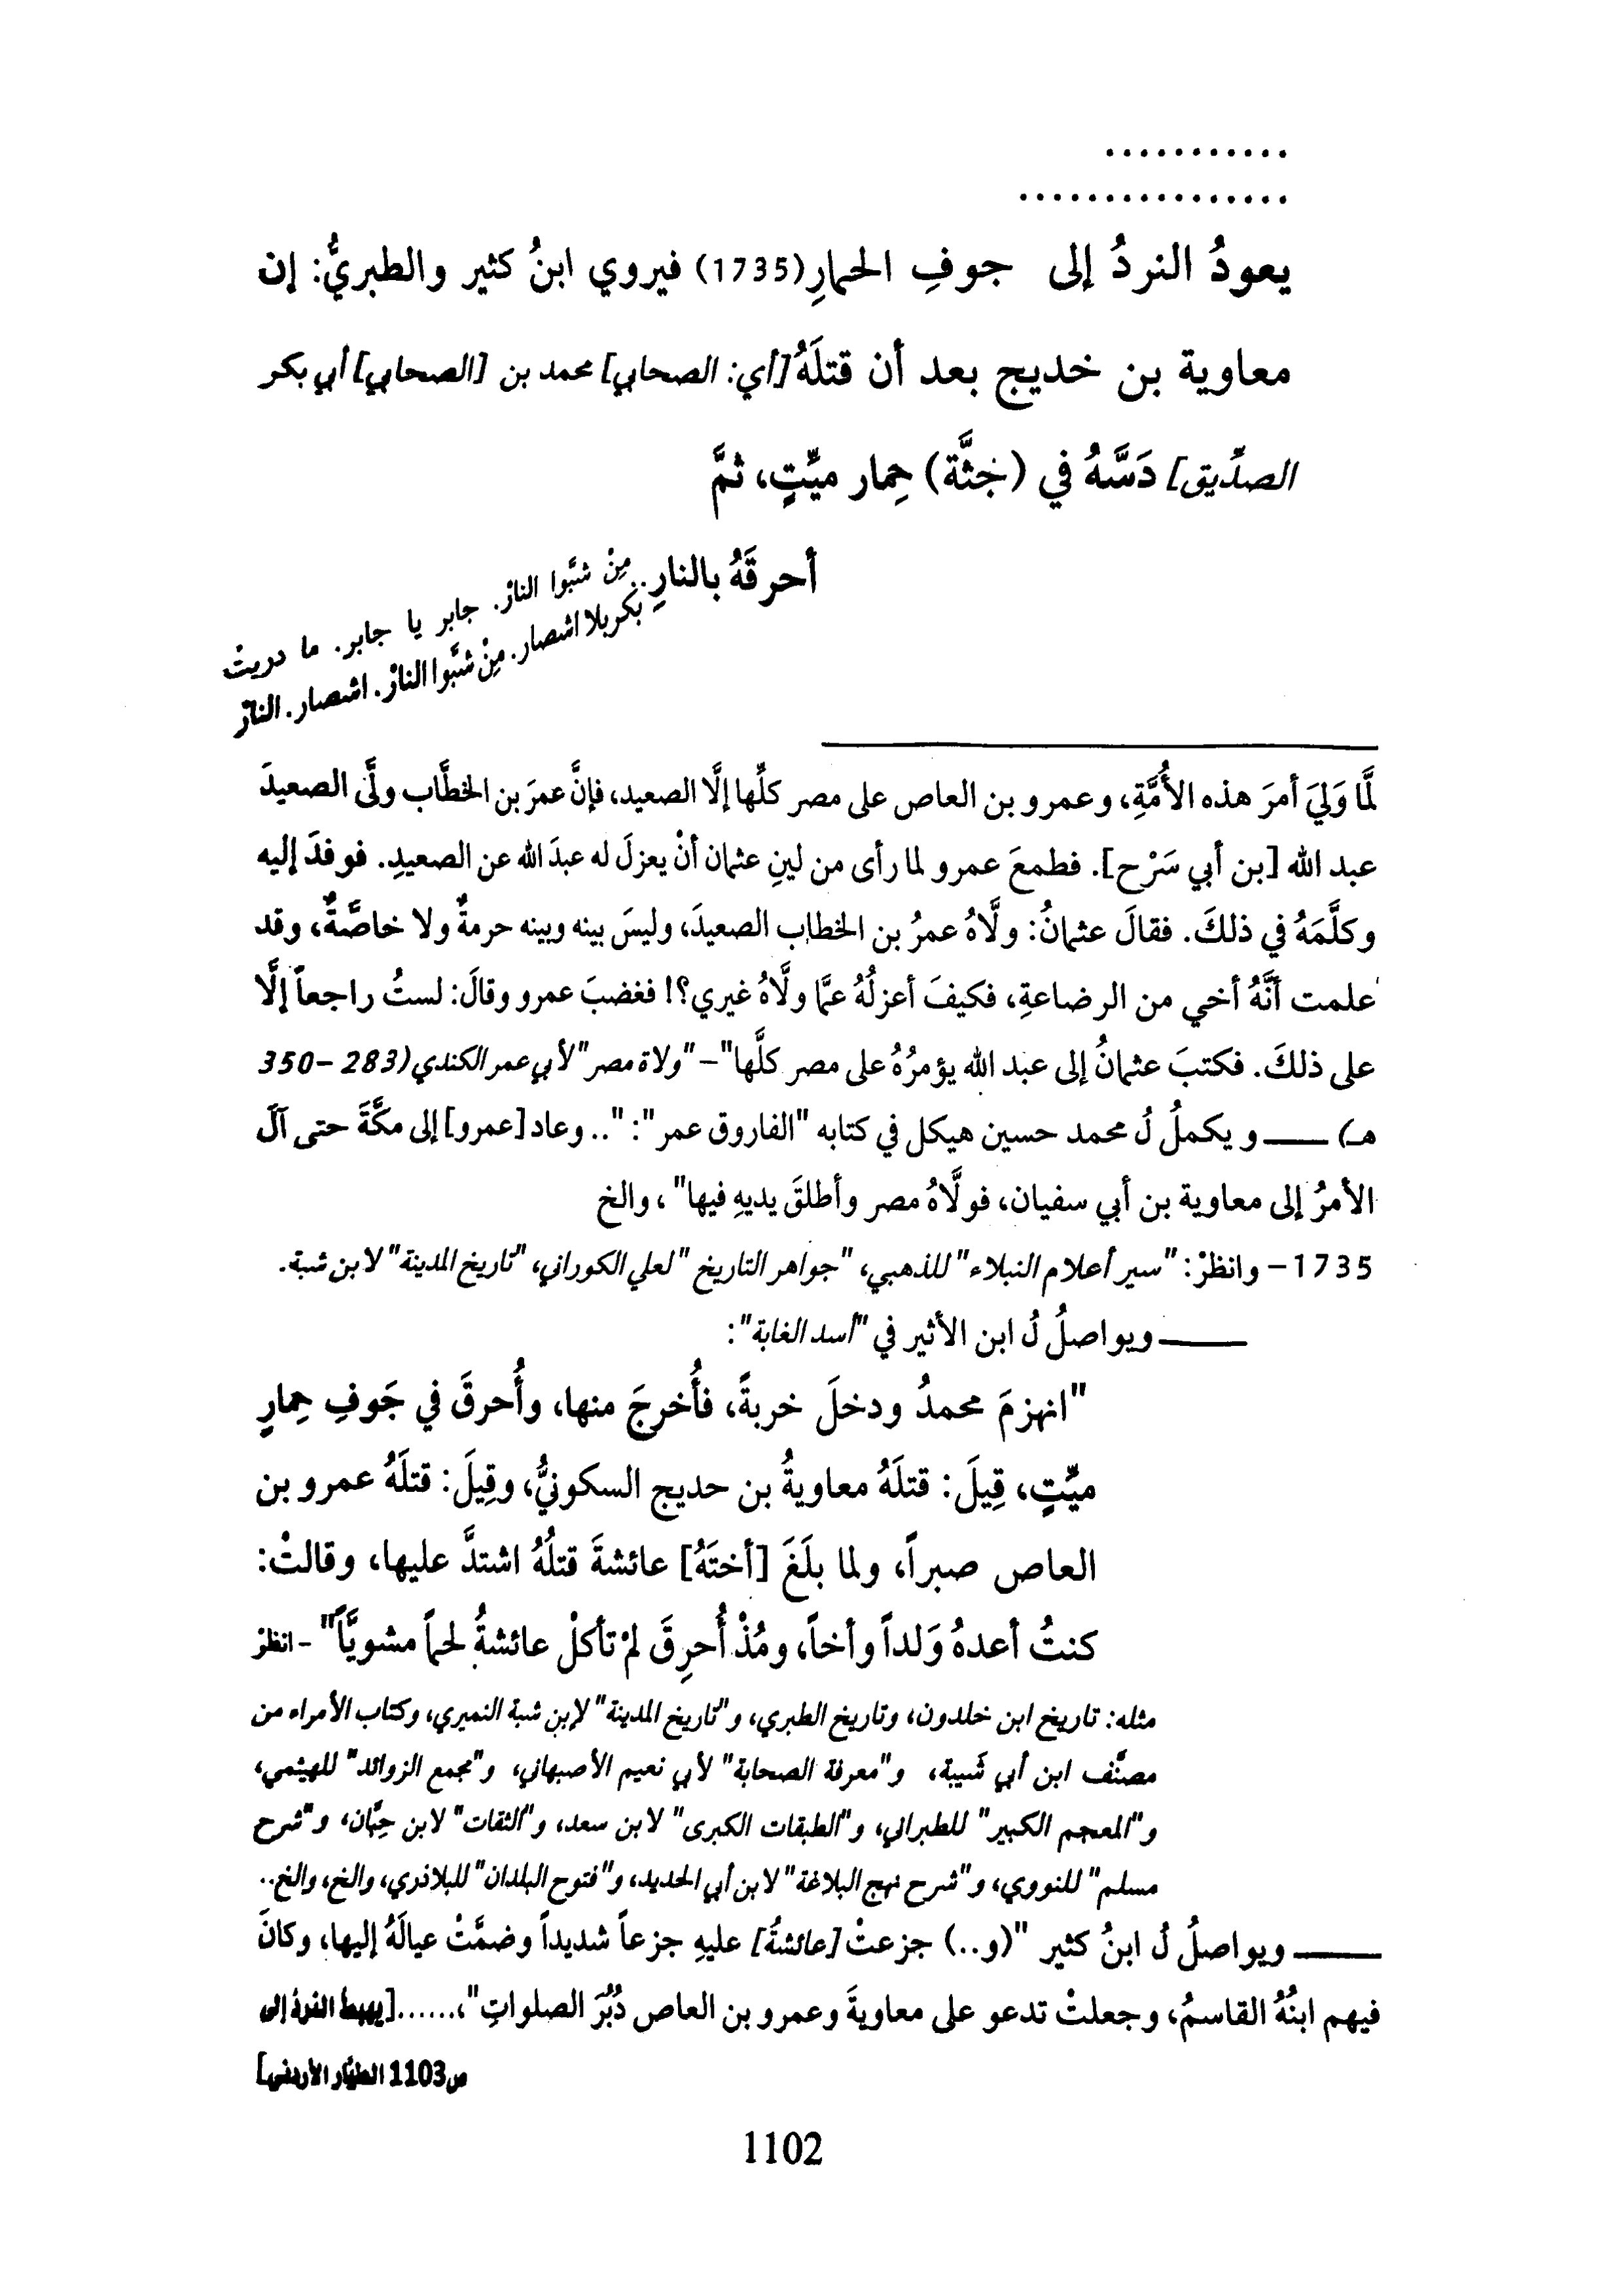 ...........
................
يعودُ النردُ إلى جوفِ الحمارِ(1735) فيروي ابنُ كثير والطبريُّ: إن
معاوية بن خديج بعد أن قتلَهُ [أي: الصحابي] محمد بن [الصحابي] أبي بكر
الصدِّيق] دَسَّهُ في (جثَّة) حِمار ميِّتٍ، ثمَّ
أحرقَهُ بالنارِ..مِنْ شبَّوا النارْ. جابر يا جابر. ما دريتْ
بكربلا اشصار. مِنْ شبَّوا النارْ. اشصار. النارْ
لَّما وَليَ أمرَ هذه الأُمَّةِ، وعمرو بن العاص على مصر كلِّها إلَّا الصعيد، فإنَّ عمرَ بن الخطَّاب ولَّى الصعيدَ
عبد الله [بن أبي سَرْح]. فطمعَ عمرو لما رأى من لينِ عثمان أنْ يعزلَ له عبدَ الله عن الصعيدِ. فوفدَ إليه
وكلَّمَهُ في ذلكَ. فقالَ عثمانُ: ولَّاهُ عمرُ بن الخطاب الصعيدَ، وليسَ بينه وبينه حرمةٌ ولا خاصَّةٌ، وقد
علمت أنَّهُ أخي من الرضاعةِ، فكيفَ أعزلُهُ عمَّا ولَّاهُ غيري؟! فغضبَ عمرو وقالَ: لستُ راجعاً إلَّا
على ذلكَ. فكتبَ عثمانُ إلى عبد الله يؤمرُهُ على مصر كلَّها"– "ولاة مصر" لأبي عمر الكندي (283 –350
هـ) ــــــ ويكملُ لُ محمد حسين هيكل في كتابه "الفاروق عمر": ".. وعاد [عمرو] إلى مكَّةَ حتى آلَ
الأمرُ إلى معاوية بن أبي سفيان، فولَّاهُ مصر وأطلقَ يديهِ فيها"، والخ
1735– وانظرْ: "سير أعلام النبلاء" للذهبي، "جواهر التاريخ" لعلي الكوراني، "تاريخ المدينة" لابن شبة.
ــــــ ويواصلُ لُ ابن الأثير في "أسد الغابة":
"انهزمَ محمدُ ودخلَ خربةً، فأُخرجَ منها، وأُحرقَ في جَوفِ حِمارٍ
ميِّتٍ، قِيلَ: قتلَهُ معاويةُ بن حديج السكونيُّ، وقِيلَ: قتلَهُ عمرو بن
العاص صبراً، ولما بلَغَ [أختَهُ] عائشةَ قتلُهُ اشتدَّ عليها، وقالتْ:
كنتُ أعدهُ وَلداً وأخاً، ومُذْ أُحرِقَ لمْ تأكلْ عائشةُ لحماً مشويَّاً" –انظرْ
مثله: تاريخ ابن خلدون، وتاريخ الطبري، و"تاريخ المدينة" لإبن شبة النميري، وكتاب الأمراء من
مصنَّف ابن أبي شَيبة، و"معرفة الصحابة" لأبي نعيم الأصبهاني، و"مجمع الزوائد" للهيثمي،
و"المعجم الكبير" للطبراني، و"الطبقات الكبرى" لابن سعد، و"الثقات" لابن حِبَّان، و"شرح
مسلم" للنووي، و"شرح نهج البلاغة" لابن أبي الحديد، و"فتوح البلدان" للبلاذري، والخ، والخ..
ــــــ ويواصلُ لُ ابنُ كثير "(و..) جزعتْ [عائشةُ] عليهِ جزعاً شديداً وضمَّتْ عيالَهُ إليها، وكانَ
فيهم ابنُهُ القاسمُ، وجعلتْ تدعو على معاويةَ وعمرو بن العاص دُبُرَ الصلواتِ"،......[يهبط النردُ إلى
ص1103 الطيَّار الأردني]
1102